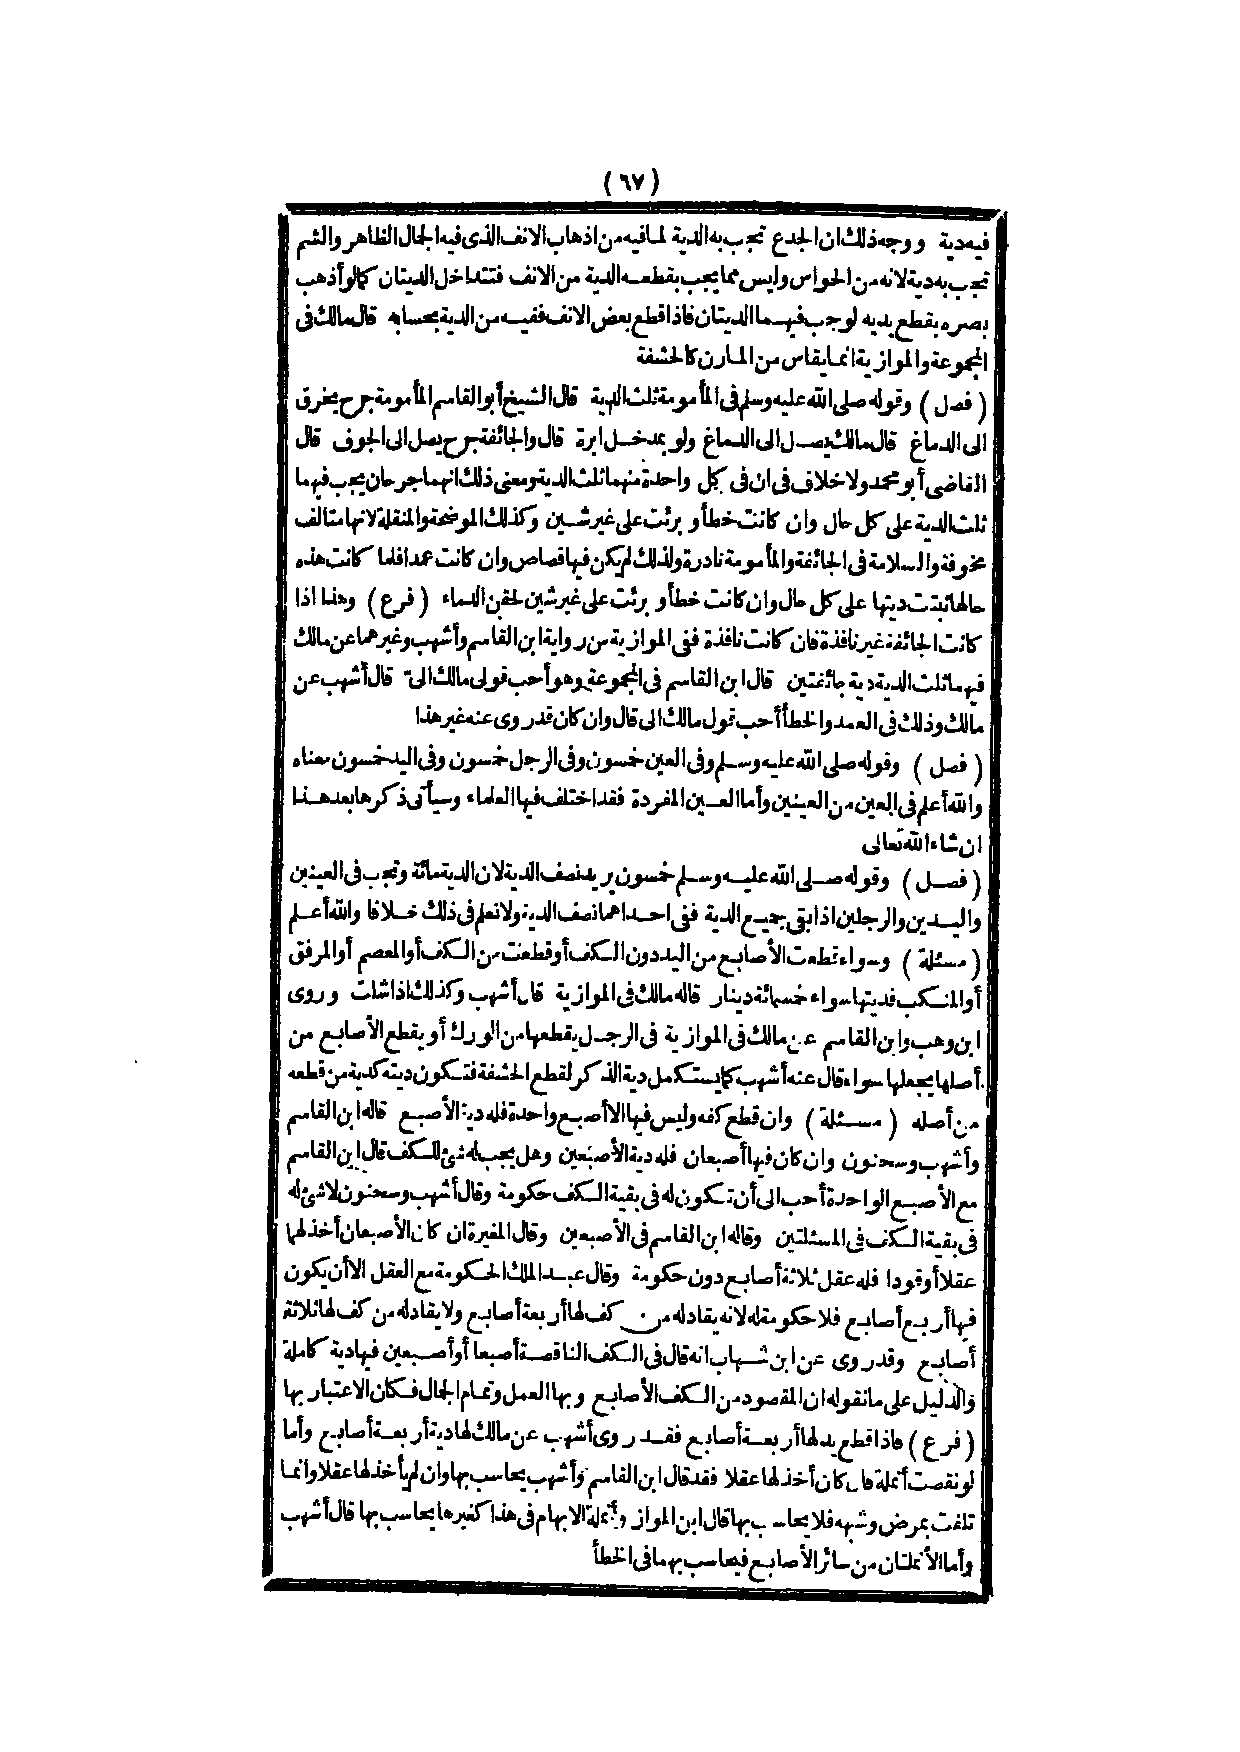 (٦٧)
فيه دية ووجه ذلك ان الجدع تجب به الدية لما فيه من اذهاب الانف الذي فيه الجمال الظاهر والشم
تجب به دية لانه من الحواس وليس مما يجب بقطعه الدية من الانف فتتداخل الديتان كما لو أذهب
بصره بقطع يديه لوجب فيهما الديتان فاذا قطع بعض الانف ففيه من الدية بحسابه قال مالك في
المجموعة والموازية انما يقاس من المارن كالحشفة
(فصل) وقوله صلى الله عليه وسلم في المأمومة ثلث الدية قال الشيخ أبو القاسم المأمومة جرح يخرق
الى الدماغ قال مالك يصل الى الدماغ ولو بمدخل ابرة قال والجائفة جرح يصل الى الجوف قال
القاضى أبو محمد ولا خلاف في ان في كل واحدة منهما ثلث الدية ومعنى ذلك انهما جرحان يجب فيهما
ثلث الدية على كل حال وان كانت خطأ وبرئت على غير شين وكذلك الموضحة والمنقلة لانها متالف
مخوفة والسلامة في الجائفة والمأمومة نادرة ولذلك لم يكن فيها قصاص وان كانت عمدا فلما كانت هذه
حالها ثبتت ديتها على كل حال وان كانت خطأ وبرئت على غير شين لحقن الدماء (فرع) وهذا اذا
كانت الجائفة غير نافذة فان كانت نافذة ففي الموازية من رواية ابن القاسم وأشهب وغيرهما عن مالك
فيها ثلث الدية دية جائفتين قال ابن القاسم في المجموعة وهو أحب قولى مالك الىّ قال أشهب عن
مالك وذلك في العمد والخطأ أحب قول مالك الى قال وان كان قد روى عنه غير هذا
(فصل) وقوله صلى الله عليه وسلم وفي العين خمسون وفي الرجل خمسون وفي اليد خمسون معناه
والله أعلم في العين من العينين وأما العين المفردة فقد اختلف فيها العلماء وسيأتى ذكرها بعد هذا
ان شاء الله تعالى
(فصل) وقوله صلى الله عليه وسلم خمسون يريد نصف الدية لان الدية مائة وتجب في العينين
واليدين والرجلين اذا بقى جميع الدية ففي احداهما نصف الدية ولا نعلم في ذلك خلافا والله أعلم
(مسئلة) وسواء قطعت الأصابع من اليد دون الكف أو قطعت من الكف أو المعصم أو المرفق
أو المنكب فديتها سواء خمسمائة دينار قاله مالك في الموازية قال أشهب وكذلك اذا شلت وروى
ابن وهب وابن القاسم عن مالك في الموازية في الرجل يقطعها من الورك أو يقطع الأصابع من
أصلها يجعلها سواء قال عنه أشهب كما يستكمل دية الذكر لقطع الحشفة فتكون ديته كدية من قطعه
من أصله (مسئلة) وان قطع كفه وليس فيها الا أصبع واحدة فله دية الأصبع قاله ابن القاسم
وأشهب وسحنون وان كان فيها أصبعان فله دية الأصبعين وهل يجب له شئ للكف قال ابن القاسم
مع الأصبع الواحدة أحب الى أن تكون له في بقية الكف حكومة وقال أشهب وسحنون لا شئ له
في بقية الكف في المسئلتين وقاله ابن القاسم في الأصبعين وقال المغيرة ان كان الأصبعان أخذ لهما
عقلا أو قودا فله عقل ثلاثة أصابع دون حكومة وقال عبد الملك الحكومة مع العقل الا أن يكون
فيها أربع أصابع فلا حكومة له لانه يقاد له من كف لها أربعة أصابع ولا يقاد له من كف لها ثلاثة
أصابع وقد روى عن ابن شهاب انه قال في الكف الناقصة أصبعا أو أصبعين فيها دية كاملة
والدليل على ما نقوله ان المقصود من الكف الأصابع وبها العمل وتمام الجمال فكان الاعتبار بها
(فرع) فاذا قطع يد لها أربعة أصابع فقد روى أشهب عن مالك لها دية أربعة أصابع وأما
لو نقصت أنملة فان كان أخذ لها عقلا فقد قال ابن القاسم وأشهب يحاسب بها وان لم يأخذ لها عقلا وانما
تلفت بمرض وشبهه فلا يحاسب بها قال ابن المواز وأنملة الابهام في هذا كغيرها يحاسب بها قال أشهب
وأما الأنملتان من سائر الأصابع فيحاسب بهما في الخطأ